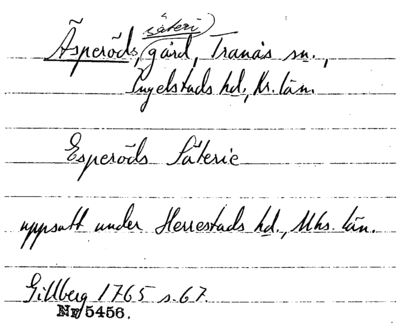 säteri
Äsperöds, (gård, Tranås sn.,
Ingelstads hd., Kr. län.
Esperöds Säterie
uppsatt under Herrestads hd., Mhs. län.
Gillberg 1765 s. 67.
NF/5456.